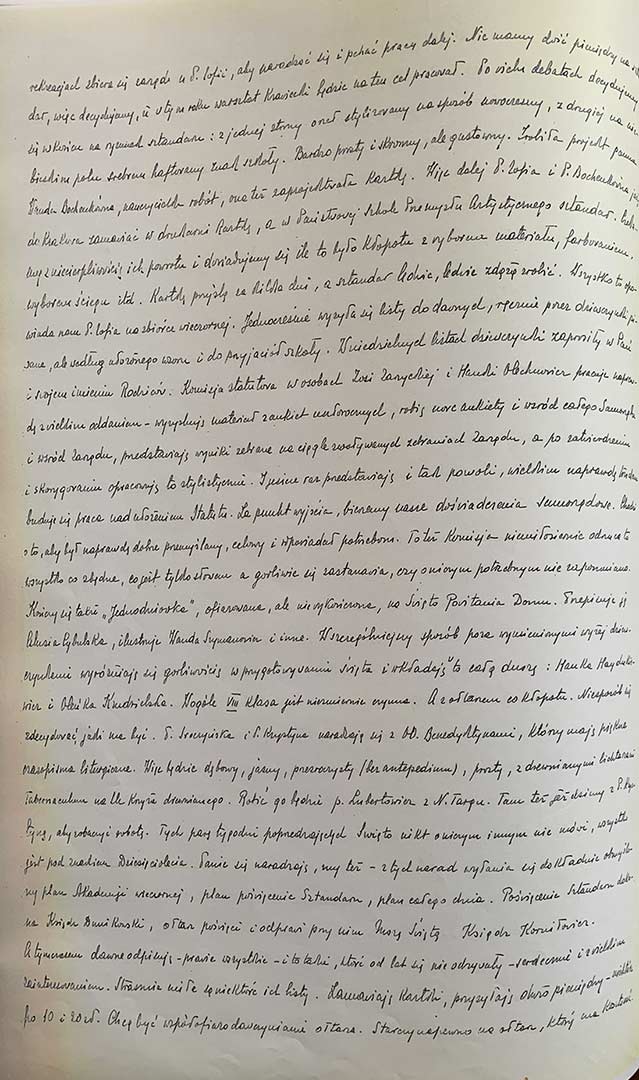 rekreacjach zbiera się zarząd u P. Zofii, aby naradzać się i pchać pracę dalej. Nie mamy dość pieniędzy na
dar, więc decydujemy, iż w tym roku warsztat krawiecki będzie na ten cel pracował. Po wielu debatach decydujemy
się w końcu na rysunek sztandaru: z jednej strony orzeł stylizowany na sposób nowoczesny, z drugiej na nie-
bieskim polu srebrem haftowany znak szkoły. Bardzo prosty i skromny, ale gustowny. Zrobiła projekt panna
Wanda Bochenkówna, nauczycielka robót, ona też zaprojektowała kartkę. Więc dalej P. Zofia i P. Bochenkówna
do Krakowa zamawiać w drukarni kartkę, a w Państwowej Szkole Przemysłu Artystycznego sztandar.
my z niecierpliwością ich powrotu i dowiadujemy się ile to było kłopotu z wyborem materiału, farbowaniem,
wyborem ściegu itd. Kartki przyjdą za kilka dni, a sztandar ledwie, ledwie zdążą zrobić. Wszystko to opo-
wiada nam P. Zofia na zbiórce wieczornej. Jednocześnie wysyła się listy do dawnych, ręcznie przez dziewczynki pi-
sane, ale według ułożonego wzoru i do przyjaciół szkoły. W niedzielnych listach dziewczynki zaprosiły w Pań
i swojem imieniu Rodziców. Komisja statutowa w osobach Zosi Zaryckiej i Hanki Olechnowicz pracuje napraw-
dę z wielkim oddaniem – wyzyskują materiał z ankiet zeszłorocznych, robią nowe ankiety i wśród całego Samorządu
i wśród Zarządu, przedstawiają wyniki zebrane na ciągle zwoływanych zebraniach Zarządu, a po zatwierdzeniu
i skorygowaniu opracowują to stylistycznie. I jeszcze raz przedstawiają i tak powoli, wielkim naprawdę trudem
buduje się praca nad ułożeniem Statutu. Za punkt wyjścia, bierzemy nasze doświadczenia samorządowe. Chodzi
o to, aby był naprawdę dobrze przemyślany, celowy i odpowiadał potrzebom. To też Komisja niemiłosiernie odrzuca to
wszystko co zbędne, co jest tylko słowem a gorliwie się zastanawia, czy o niczym potrzebnym nie zapomniano.
Kończy się także „Jednodniówka”, ofiarowana, ale niewykończona, na Święto Powitania Domu. Przepisuje ją
Celusia Cybulska, ilustruje Wanda Szymanowicz i inne. W szczególniejszy sposób poza wymienionymi wyżej dziew-
czynkami wyróżniają się gorliwością w przygotowywaniu święta i wkładają w to całą duszę: Hanka Hayduk-
wicz i Oleńka Kudzielska. Wogóle VIII klasa jest niezmiernie czynna. A z ołtarzem co kłopotu. Niesposób się
zdecydować, jaki ma być. P. Sroczyńska i P. Krystyna naradzają się z OO. Benedyktynami, którzy mają piękne
czasopisma liturgiczne. Więc będzie dębowy, jasny, przezroczysty (bez antepedium), prosty, z drewnianymi lichtarzami
Tabernaculum na tle krzyża drewnianego. Robić go będzie p. Lubertowicz z N. Targu. Tam też jeździmy z P. Kry-
styną, aby zobaczyć robotę. Tych parę tygodni poprzedzających Święto nikt o niczym innym nie mówi, wszystko
jest pod znakiem Dziesięciolecia. Panie się naradzają, my też – z tych narad wyłania się dokładnie obmyślo-
ny plan Akademji wieczornej, plan poświęcenia Sztandaru, plan całego dnia. Poświęcenia Sztandaru doko-
na Ksiądz Dunikowski, ołtarz poświęci i odprawi przy nim Mszę Świętą Ksiądz Korniłowicz.
A tymczasem dawne odpisują – prawie wszystkie – i to takie, które od lat się nie odzywały – serdecznie i z wielkim
zainteresowaniem. Strasznie miłe są niektóre ich listy. Zamawiają kartki, przysyłają pieniędzy – niektóre
po 10 i 20 zł. Chcą być współofiarodawczyniami ołtarza. Starczy napewno na ołtarz, który ma kosztować